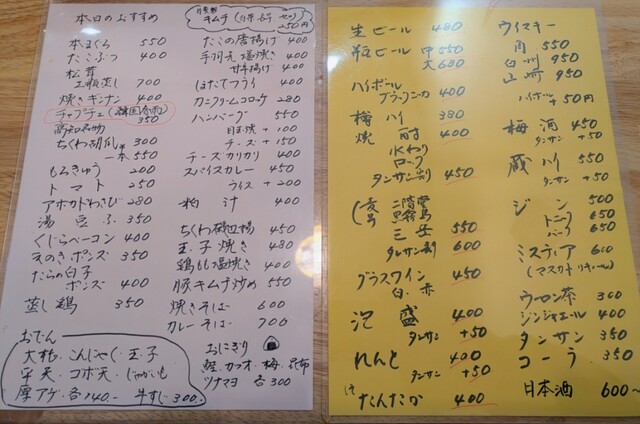 本日のおすすめ
本まぐろ 550
たこぶつ 400
松茸
土瓶蒸し 700
焼きギンナン 400
チャプチェ(韓国春雨) 350
高知名物
ちくわ胡瓜 半 300
一本 550
もろきゅう 200
トマト 250
アボカドわさび 280
湯豆ふ 350
くじらベーコン 400
えのきポンズ 350
たらの白子
ポンズ 400
蒸し鶏 350
おでん
大根・こんにゃく・玉子
平天・ゴボ天・じゃがいも
厚アゲ・各140.- 牛すじ300.-
自家製
キムチ(白菜 セロリ)
250円
たこの唐揚げ 400
手羽元 塩焼き 400
甘辛揚げ 400
ほたてフライ 400
カニクリームコロッケ 280
ハンバーグ 550
目玉焼 +100
チーズ +150
チーズカリカリ 400
スパイスカレー 450
ライス +200
粕汁 400
ちくわ磯辺揚 450
玉子焼き 480
鶏もも塩焼き 400
豚キムチ炒め 550
焼きそば 600
カレーそば 700
おにぎり
鮭・カツオ・梅・昆布
ツナマヨ 各300
生ビール 480
瓶ビール 中 550
大 680
ハイボール
ブラックニッカ 400
樽ハイ 380
焼酎 400
水わり
ロック
タンサン割 450
(麦)二階堂
(芋)黒霧島
三岳 550
タンサン割 600
グラスワイン 450
白・赤
泡盛 400
タンサン +50
れんと 400
タンサン +50
たんたかたん 400
ウイスキー
角 550
白州 950
山崎 950
ハイボール +50円
梅酒 450
タンサン +50
蔵ハイ 550
タンサン +50
ジン 500
トニック 650
バック 650
ミスティア 600
(マスカットリキュール)
ウーロン茶 300
ジンジャエール 400
タンサン 350
コーラ 350
日本酒 600〜